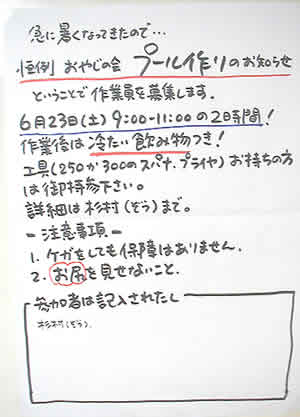 急に暑くなってきたので…
恒例 おやじの会 プール作りのお知らせ
ということで作業員を募集します。
6月23日(土) 9:00-11:00の2時間!
作業後は冷たい飲み物つき!
工具(250か300のスパナ、プライヤ)お持ちの方
は御持参下さい。
詳細は杉村(ぞう)まで。
-注意事項-
1. ケガをしても保障はありません.
2. お尻を見せないこと.
参加者は記入されたし
杉村(ぞう).